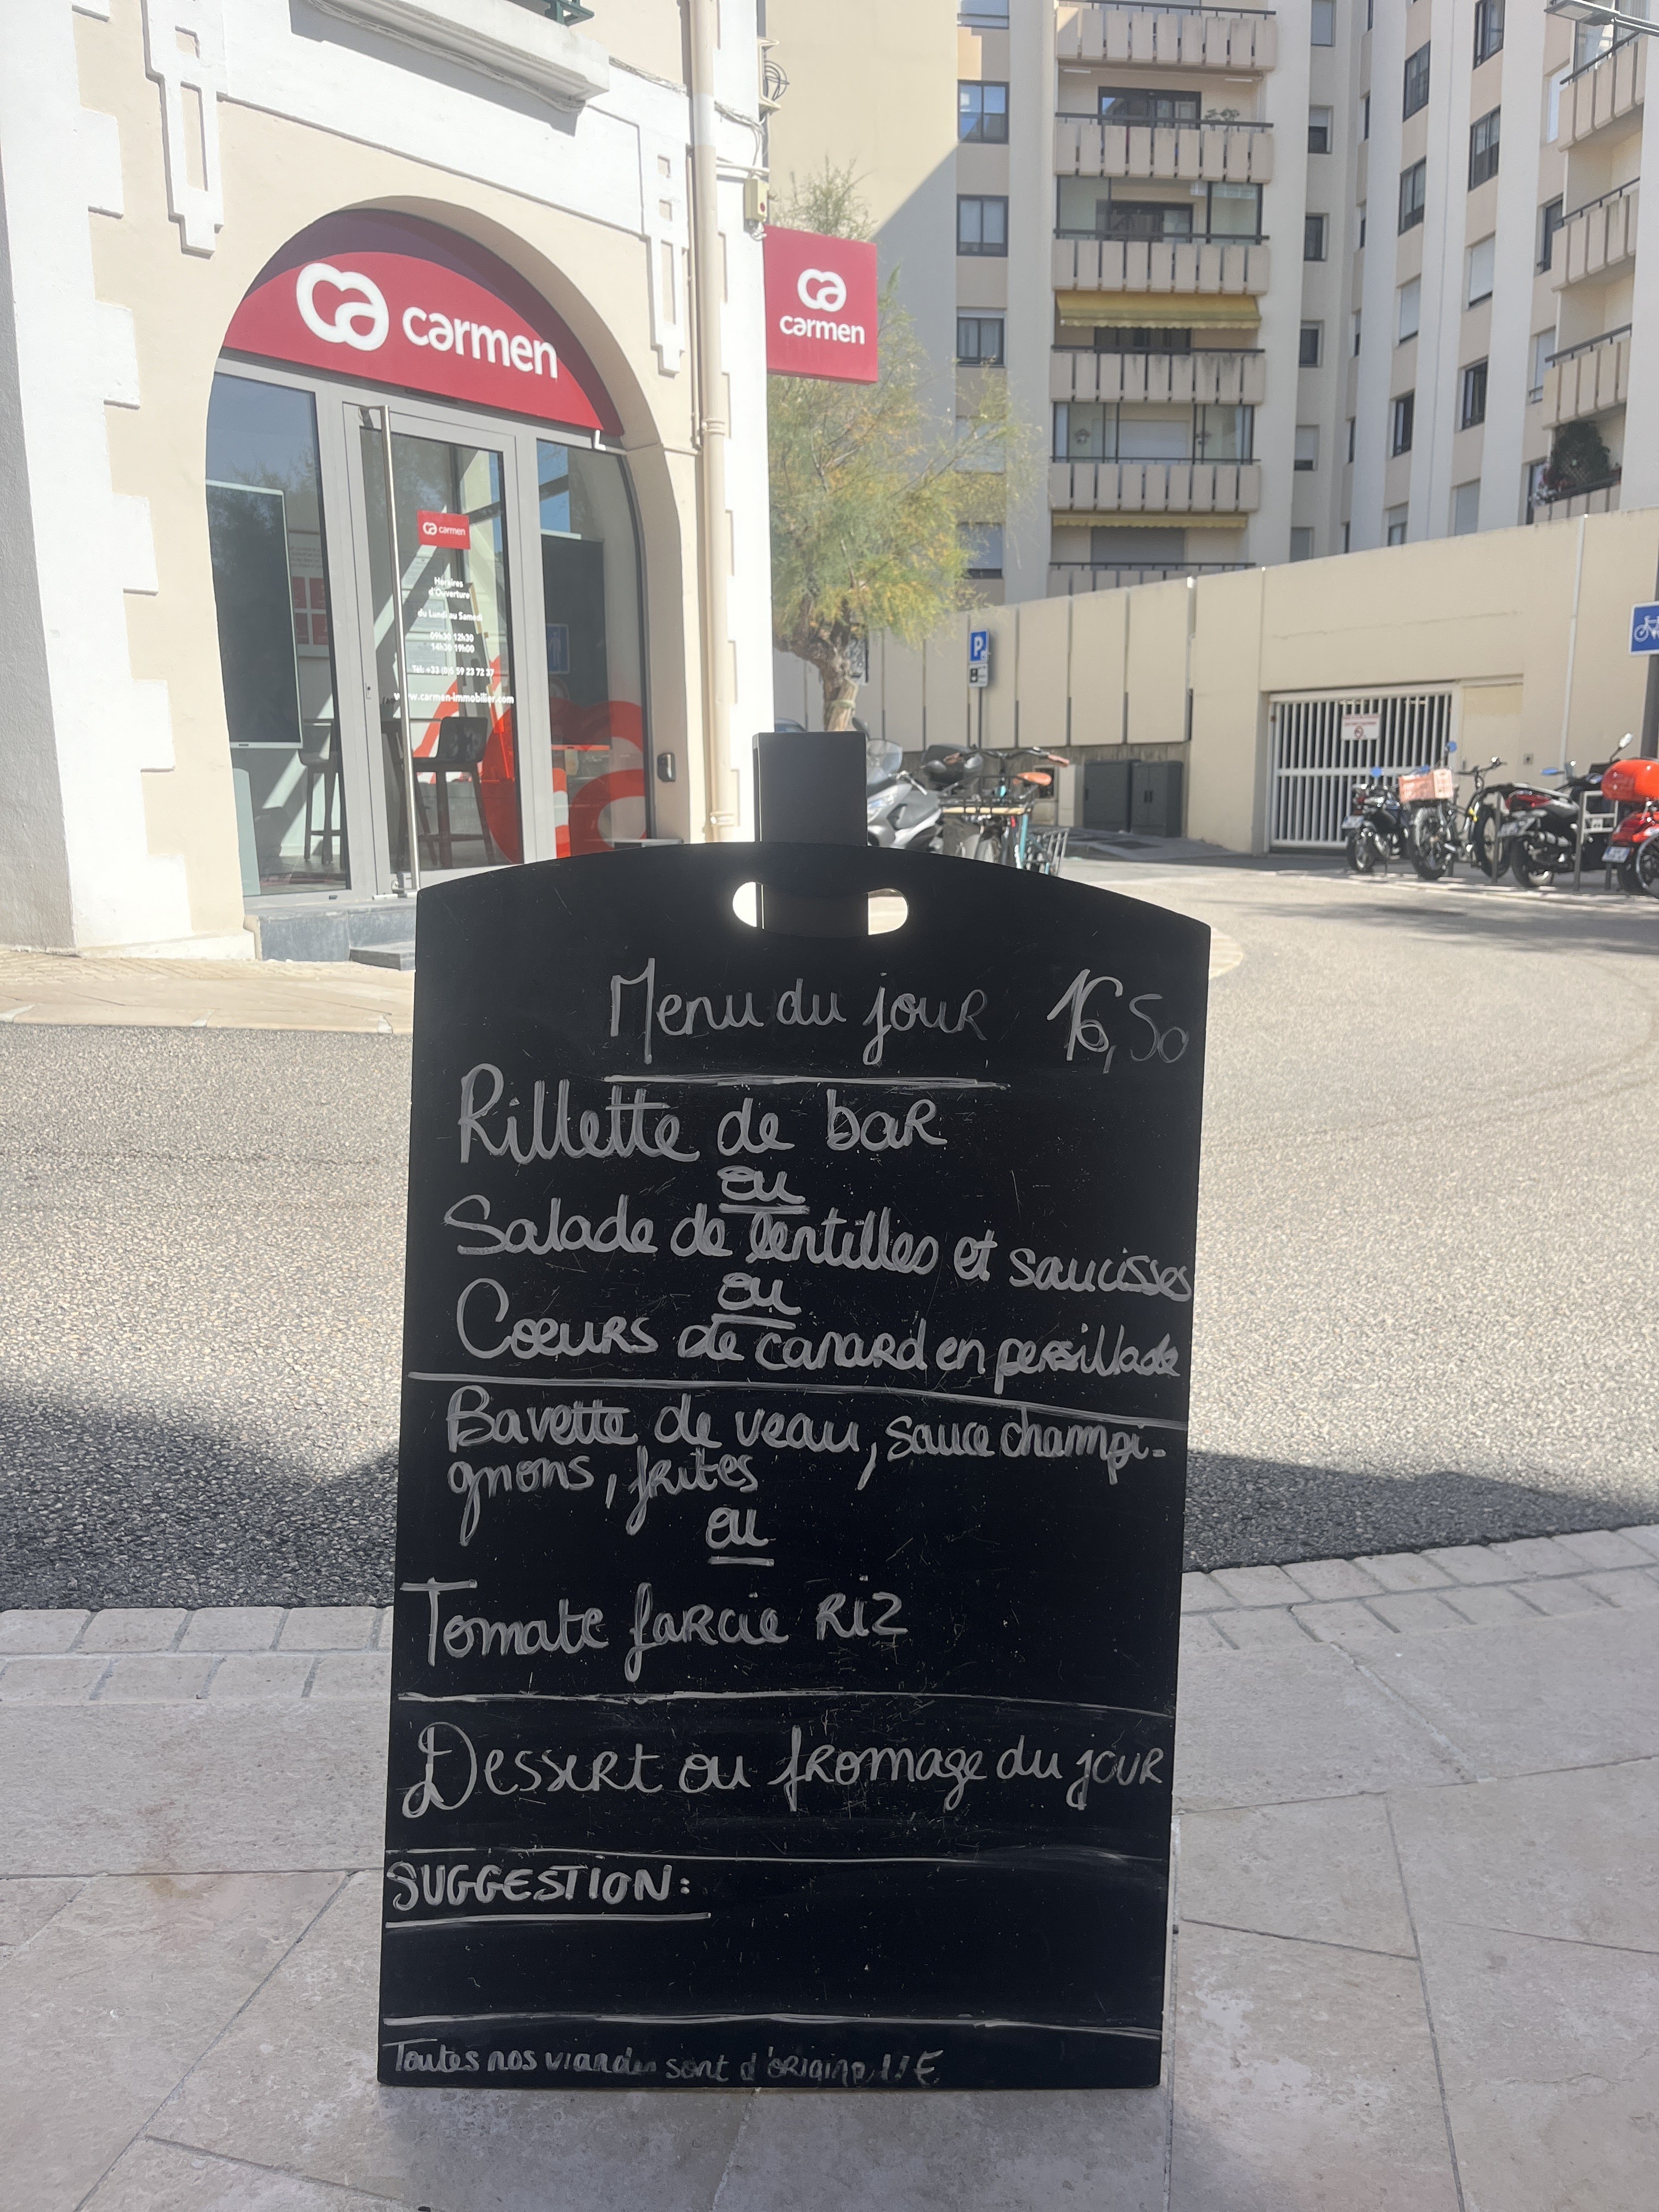 carmen
carmen
carmen
Horaires
d'Ouverture
du Lundi au Samedi
09h30 12h30
14h30 19h00
Tél: +33 (0)5 59 23 72 27
www.carmen-immobilier.com
P
Menu du jour 16,50
Rillette de bar
ou
Salade de lentilles et saucisses
ou
Coeurs de canard en persillade
Bavette de veau, sauce champi-
gnons, frites
ou
Tomate farcie riz
Dessert ou fromage du jour
SUGGESTION:
Toutes nos viandes sont d'origine UE